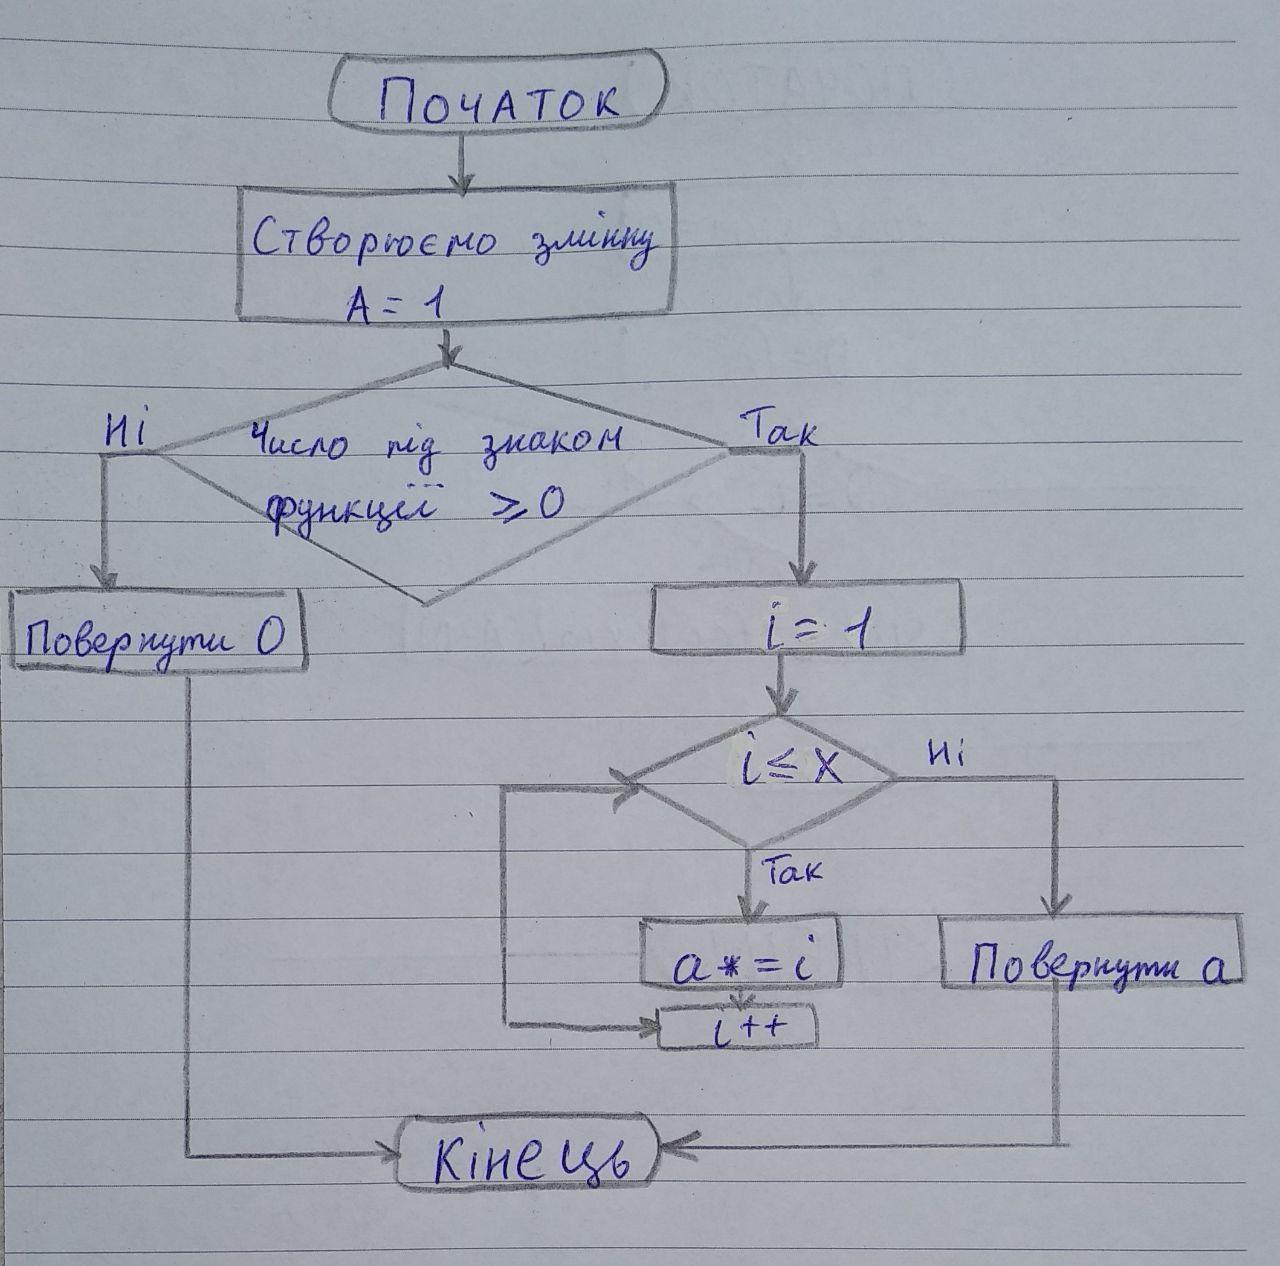 ПОЧАТОК
Створюємо змінну
A = 1
Ні
Так
Число під знаком
функції ≥ 0
Повернути 0
i = 1
i ≤ x
Ні
Так
a * = i
Повернути a
i ++
Кінець